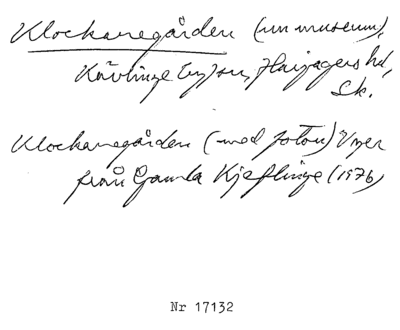 Klockaregården (nu museum),
Kävlinge Harjagers hd,
Sk.
Klockaregården (med foton)
från Gamla Kjeflinge (1976)
Nr 17132